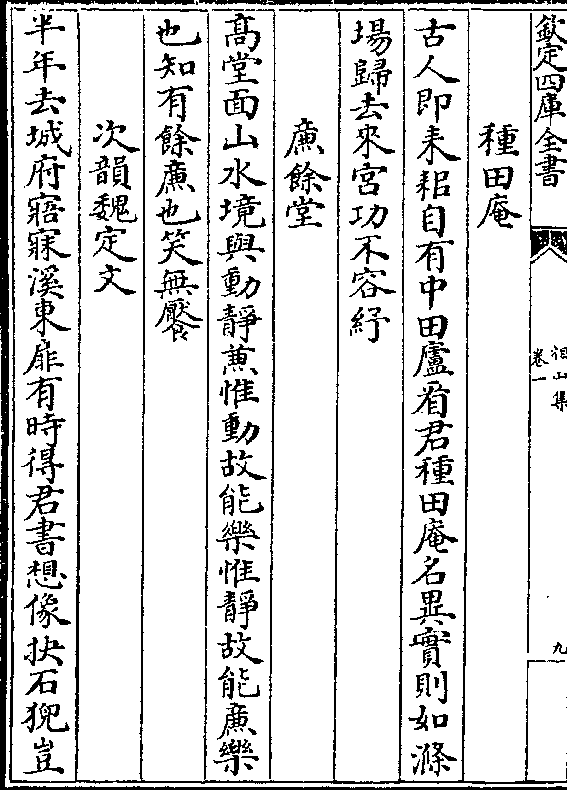 欽定四庫全書
相山集
卷一
九
種田庵
古人即耒耜自有中田廬㸔君種田庵名異實則如滌
場歸去來宮功不容紓
廉餘堂
髙堂面山水境與動靜兼惟動故能樂惟靜故能廉樂
也知有餘廉也笑無饜
次韻魏定文
半年去城府寤寐溪東扉有時得君書想像抉石猊豈